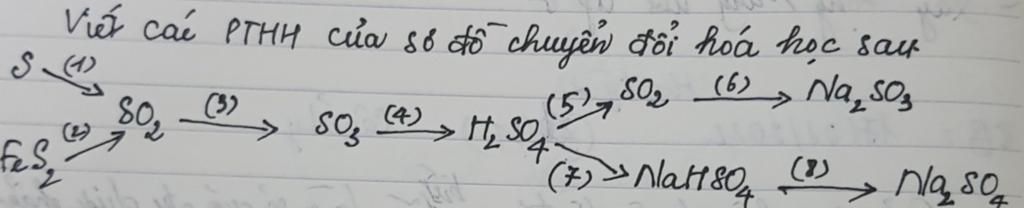 Viết các PTHH của sơ đồ chuyển đổi hoá học sau
S (1) SO2 (3) SO3 (4) H2SO4 (5) SO2 (6) Na2SO3
FeS2 (2) (7) NaHSO4 (8) Na2SO4